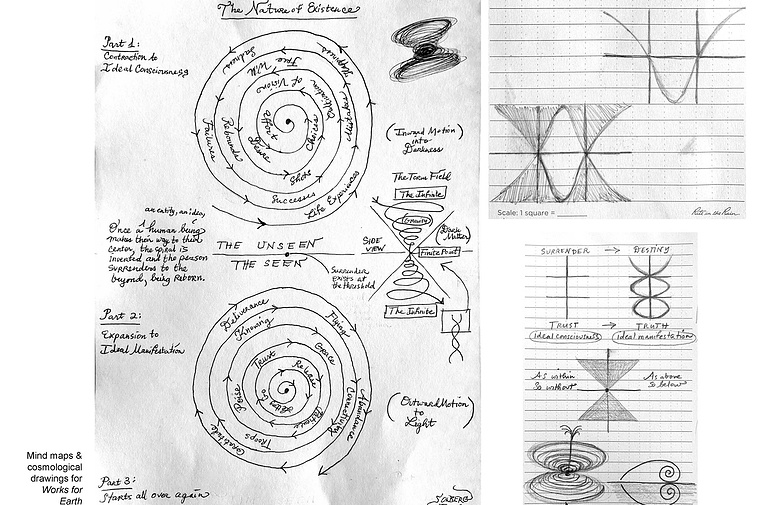 The Nature of Existence
Part 1:
Contraction to
Ideal Consciousness
Sadness
Happiness
Free Will
Cultivation
of Vision
Effort
Desire
Choices
Rebounds
Failures
Shots
Successes
Life Experiences
(Inward Motion)
into
Darkness
an entity, an idea,
Once a human being
makes their way to their
center, the spiral is
inverted and the person
surrenders to the
beyond, being REBORN.
THE UNSEEN
THE SEEN
The Torus Field
The Infinite
Gravity
(Dark
Matter)
SIDE
VIEW
Finite Point
Surrender
Exists at
the threshold
The Infinite
Part 2:
Expansion to
Ideal Manifestation
Deliverance
Knowing
Flying
Grace
Trust
Release
Letting Go
Abundance
Gratitude
(Outward Motion
to
Light)
Part 3:
Starts all over again
Mind maps &
cosmological
drawings for
Works for
Earth
Scale: 1 square =
Rite in the Rain
SURRENDER → DESTINY
TRUST → TRUTH
(ideal consciousness) (ideal manifestation)
As within
So without
As above
So below